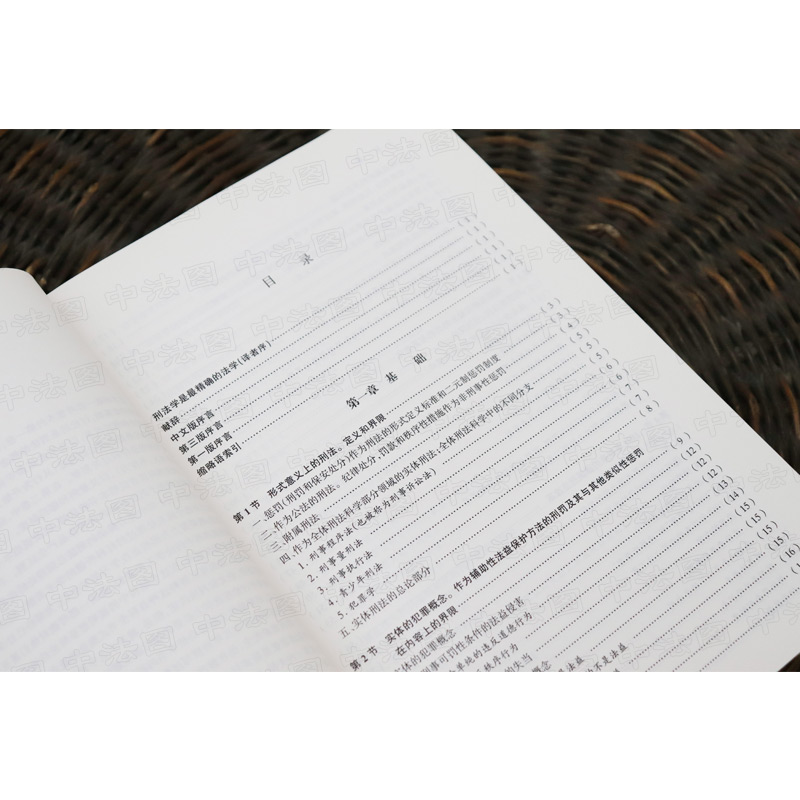 目 录
刑法学是最精确的法学(译者序)
献辞
中文版序言
第三版序言
第一版序言
缩略语索引
第一章 基 础
第1节 形式意义上的刑法。定义和界限
一、惩罚(刑罚和保安处分)作为刑法的形式定义标准和二元制惩罚制度 (3)
二、作为公法的刑法。纪律处分,罚款和秩序性措施作为非刑事性惩罚 (4)
三、附属刑法 (5)
四、作为全体刑法科学部分领域的实体刑法;全体刑法科学中的不同分支 (5)
1. 刑事程序法(也被称为刑事诉讼法) (6)
2. 刑事量刑法
3. 刑事执行法
4. 青少年刑法
5. 犯罪学 (7)
五、实体刑法的总论部分 (8)
第2节 实体的犯罪概念。作为辅助性法益保护方法的刑罚及其与其他类似性惩罚
在内容上的界限 (9)
实体的犯罪概念 (12)
刑事可罚性条件的法益侵害 (12)
单纯的违反道德行为 (13)
秩序行为 (14)
的失当 (15)
概念 (15)
是法益 (15)
不是法益 (16)
中法图